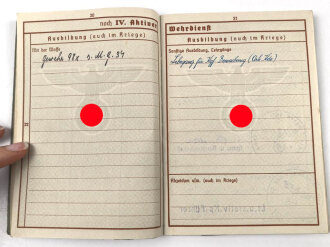 20
noch IV. Aktiver
Ausbildung (auch im Kriege)
An der Waffe
Gewehr 98k s. M.G. 34
22
21
Wehrdienst
Ausbildung (auch im Kriege)
Sonstige Ausbildung, Lehrgänge
Lehrgang für
Abzeichen usw. (auch im Kriege)